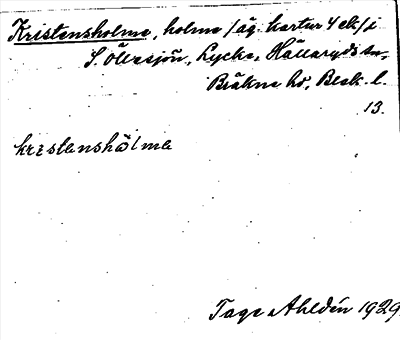 Kristensholme, holme /äg. kartur 4 elk/ i
S. Öllesjön, Lycke, Hällaryds sn,
Bräkne hd, Blek. l.
13.
kristenshȯlmɐ
Tage Ahldén 1929.